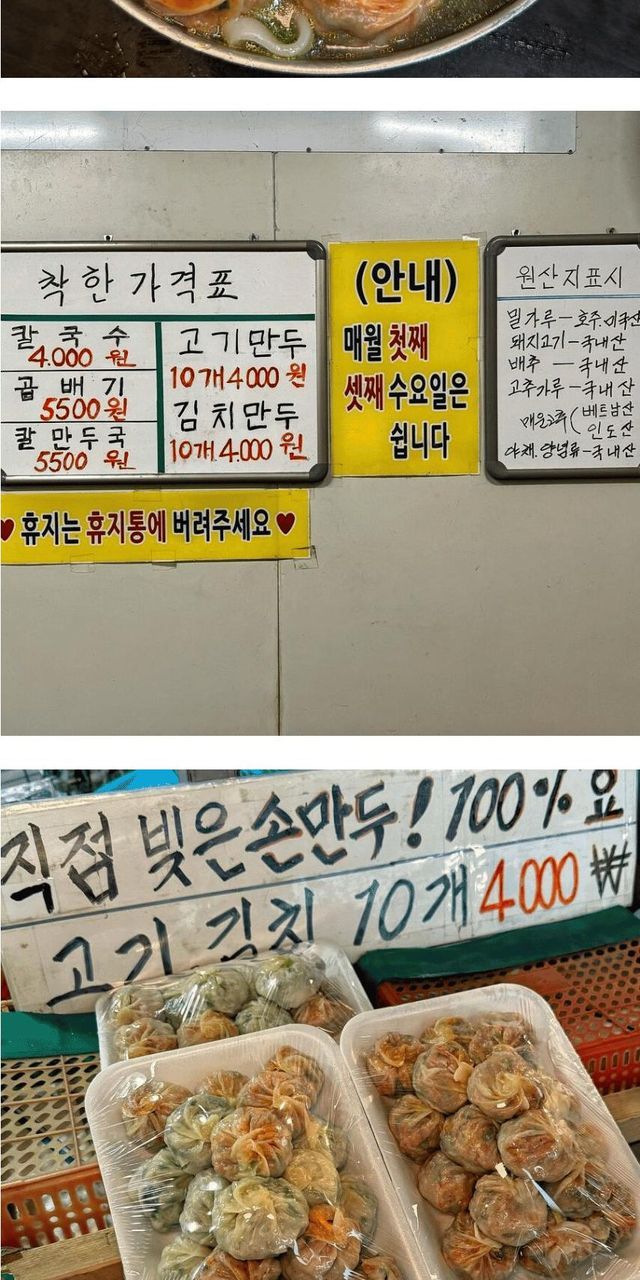 착한가격표
칼국수
4.000 원
곱배기
5500원
칼만두국
5500 원
고기만두
10개4000 원
김치만두
10개.4.000 원
(안내)
매월 첫째
셋째 수요일은
쉽니다
원산지표시
밀가루-호주.미국산
돼지고기-국내산
배추 -국내산
고추가루-국내산
베트남산
인도산
야채.양념류-국내산
♥ 휴지는 휴지통에 버려주세요 ♥
직접 빚은손만두! 100%
고기 김치 10개 4.000 ₩